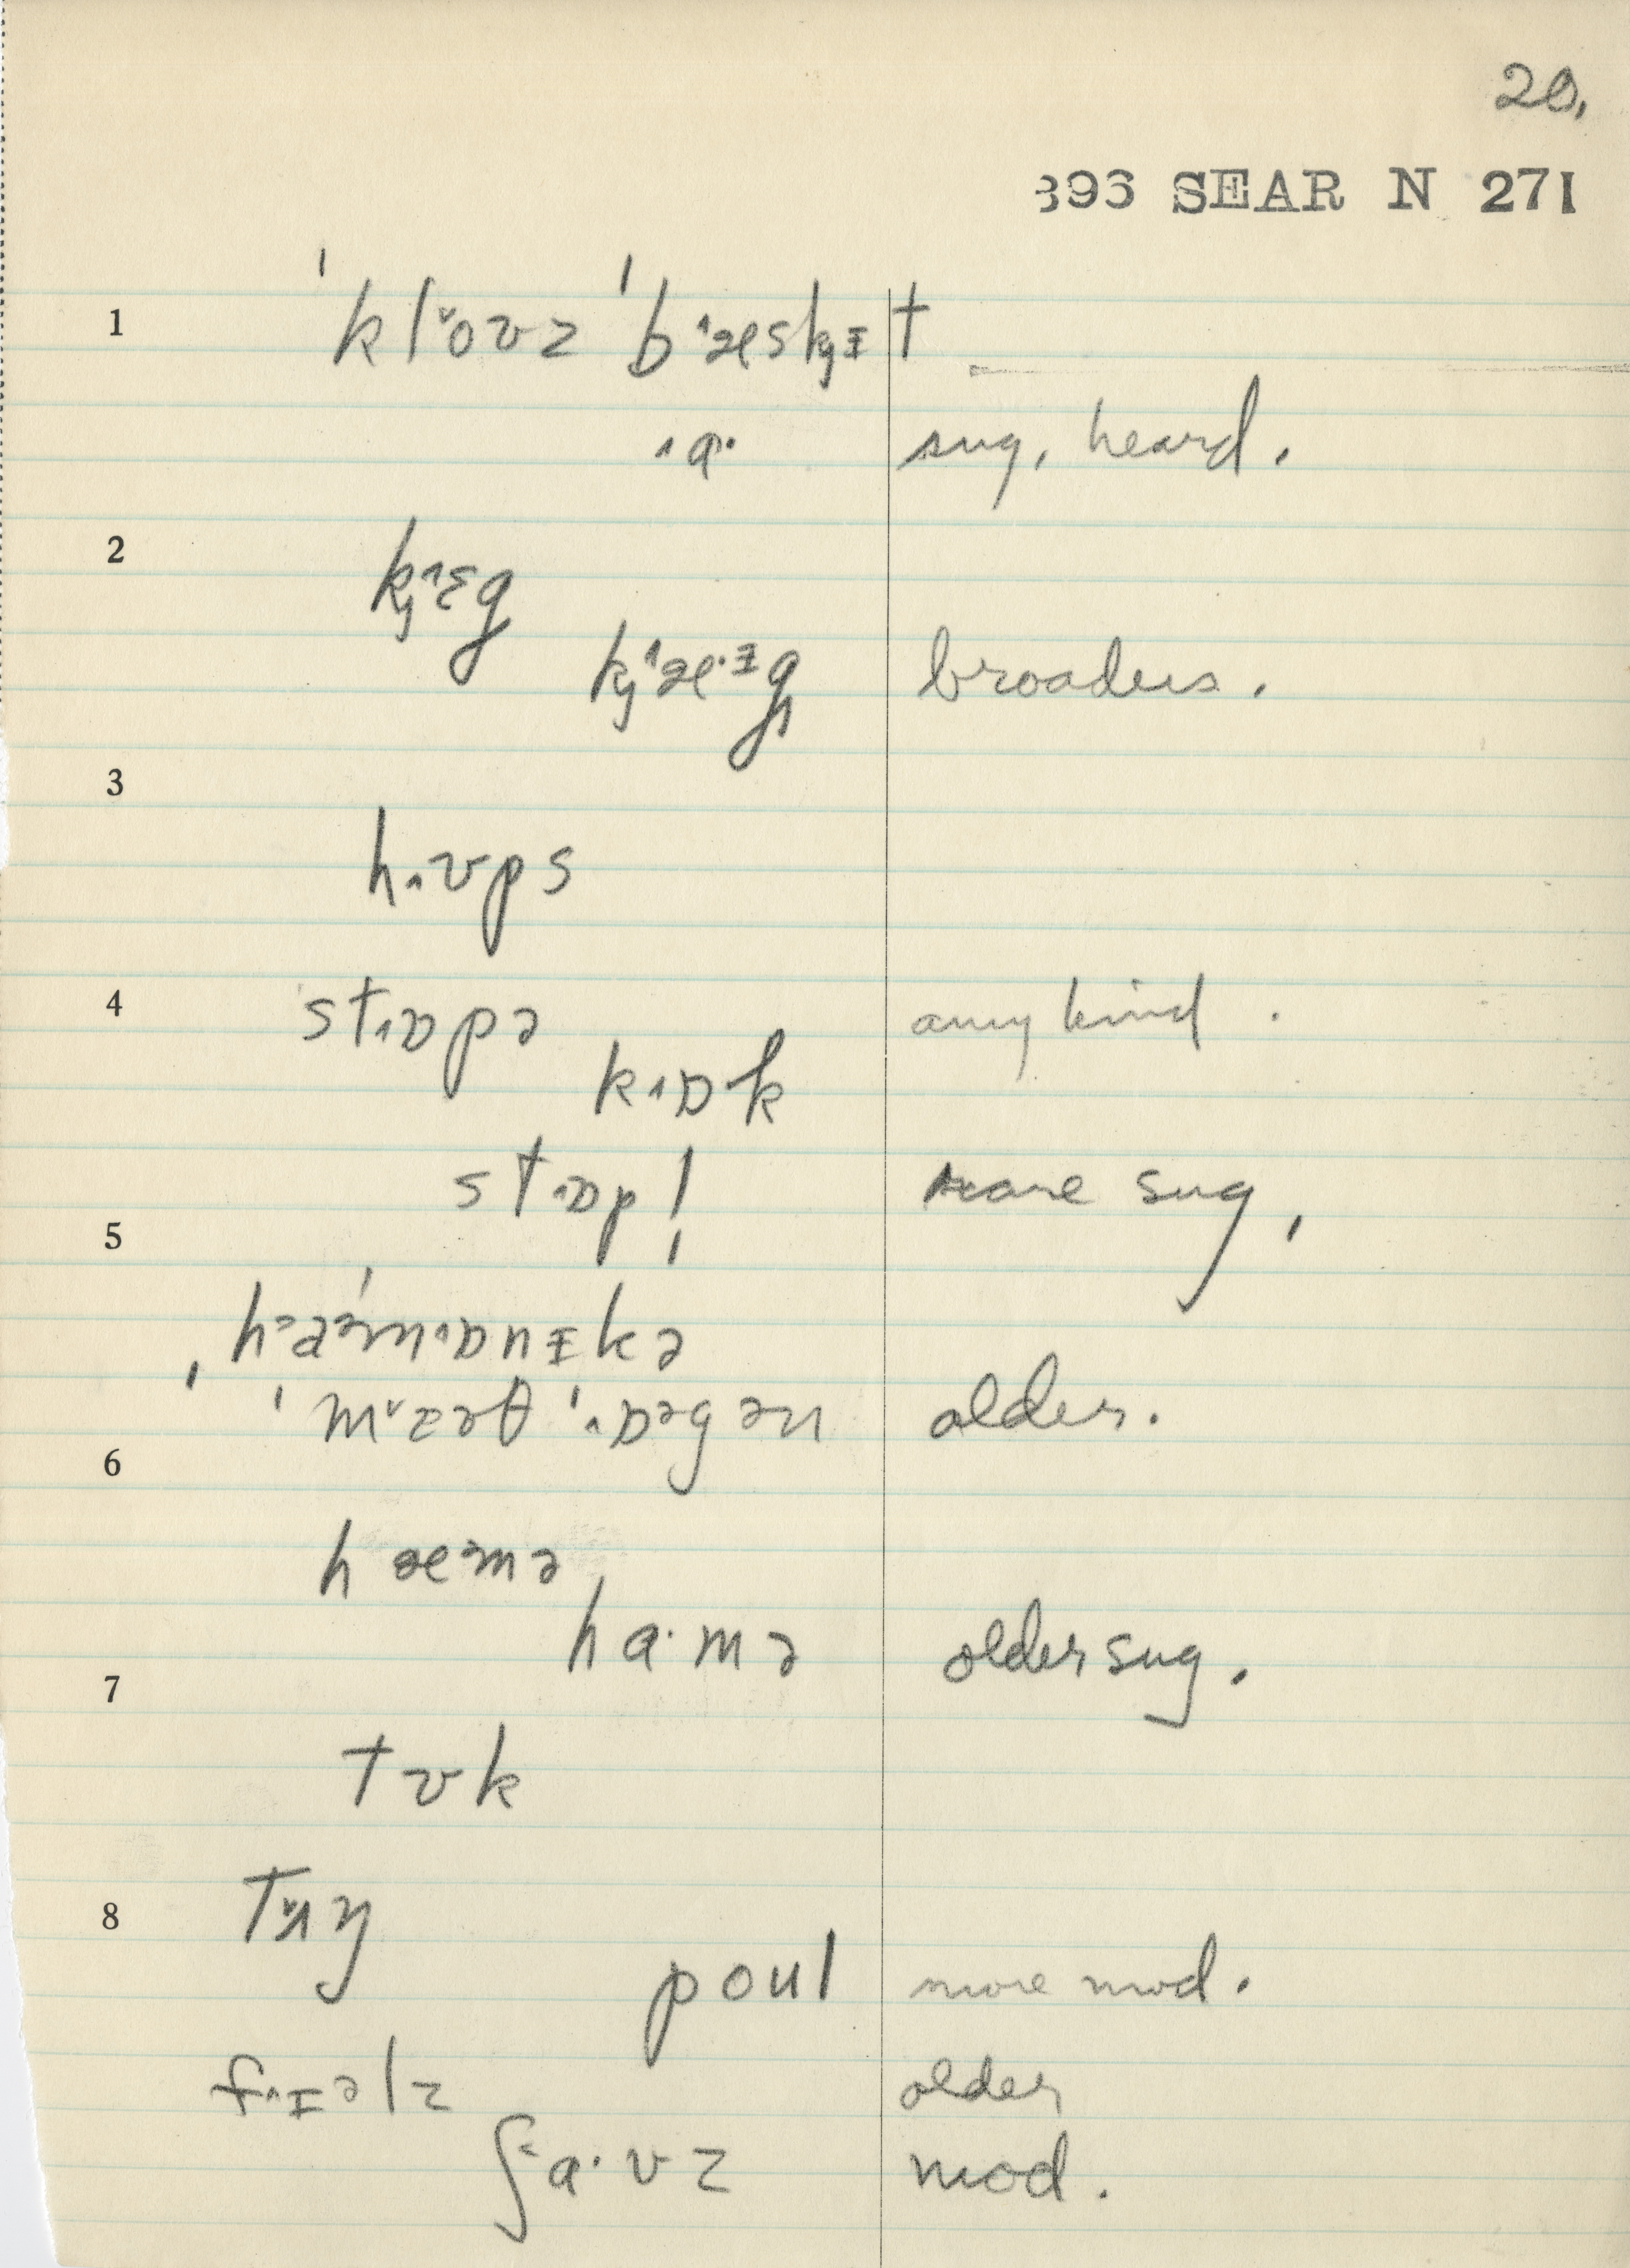 20.
396 SEAR N 271
1 ˈkl˅oʊz ˈb˄æskɪ̵t
˄a· sug. heard.
2 k̡˄ɛg
k̡˄æ·ɪ̵g̡ broadens.
3
h˄ʊps
4 st˄ɒpə any kind.
k˄ɒ·k
st˄ɒp! same sug.
5
ˌhaəˈm˄ɒnɪ̵kə
ˈm˅ɜəθ ˈ˄ɒəgən older.
6
hæᵊmə
ha·mə older sug.
7
tʊk
8 t˅ʌŋ
poul more mod.
f˄ɪəlz older
ʃa·vz mod.